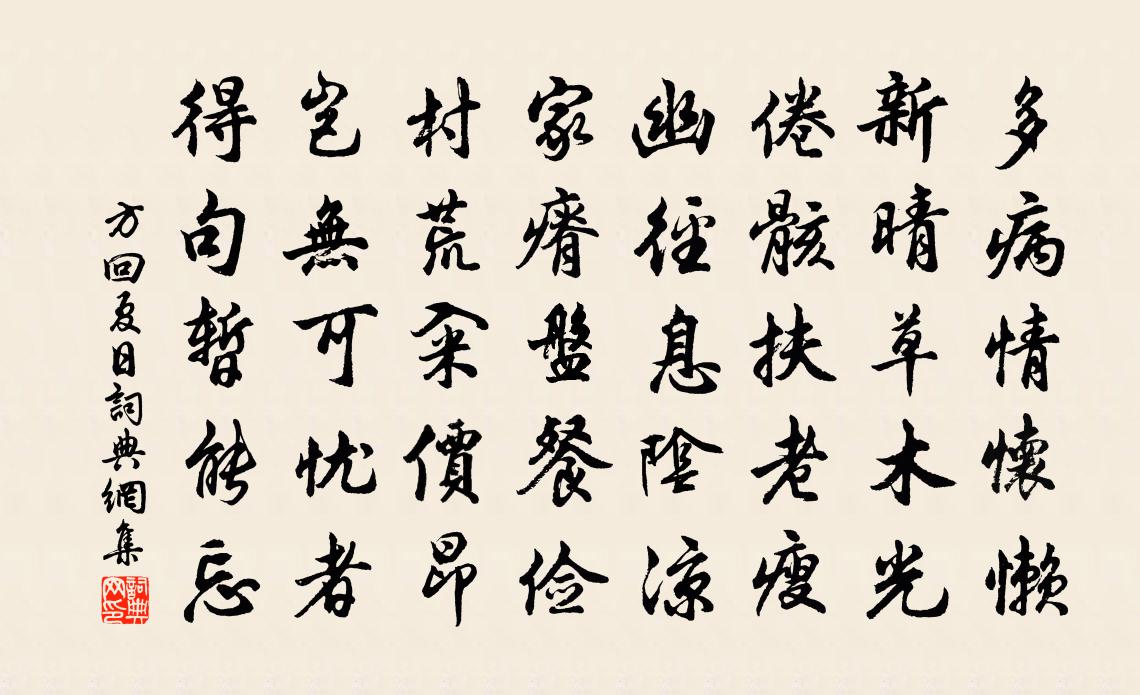 多病情懷懒
新晴草木光
倦骸扶老瘦
幽徑息陰涼
家瘠盤餐俭
村荒籴價昂
岂無可忧者
得句暫能忘
方回夏日詞典網集
詞典網印